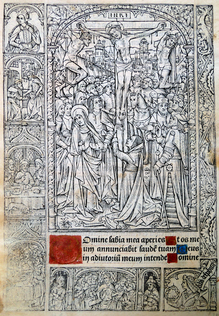 INRI
Omine labia mea aperies Et os me
um annunciabit laudē tuam Deus
in adiutoriū meum intende Domine